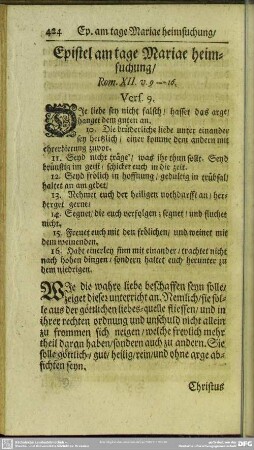 424 Ep. am tage Mariae heimsuchung/
Epistel am tage Mariae heim-
suchung/
Rom. XII. v. 9—16.
Vers. 9.
DIe liebe sey nicht falsch/ hasset das arge/
hanget dem guten an.
10. Die brüderliche liebe unter einander
sey hertzlich/ einer komme dem andern mit
ehrerbietung zuvor.
11. Seyd nicht träge/ was ihr thun solt. Seyd
brünstig im geist/ schicket euch in die zeit.
12. Seyd frölich in hoffnung/ gedultig in trübsal/
haltet an am gebet/
13. Nehmet euch der heiligen nothdurfft an/ her-
berget gerne/
14. Segnet/ die euch verfolgen/ segnet/ und fluchet
nicht.
15. Freuet euch mit den frölichen/ und weinet mit
dem weinenden.
16. Habt einerley sinn mit einander/ trachtet nicht
nach hohen dingen/ sondern haltet euch herunter zu
dem niedrigen.
WIe die wahre liebe beschaffen seyn solle/
zeiget dieser unterricht an. Nemlich/ sie sol-
le aus der göttlichen liebes-quelle fliessen/ und in
ihrer rechten ordnung und unschuld nicht allein
zu frommen sich neigen/ welche freylich mehr
theil daran haben/ sondern auch zu andern. Sie
solle göttlich/ gut/ heilig/ rein/ und ohne arge ab-
sichten seyn.
Christus